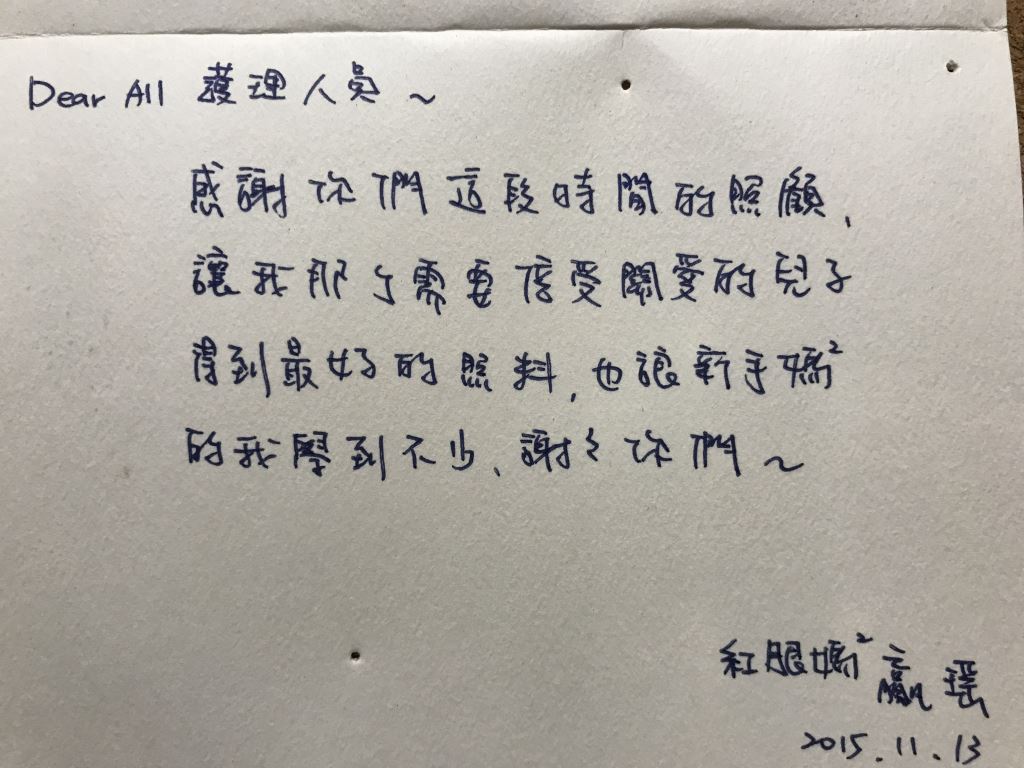 Dear All 護理人員~
感謝你們這段時間的照顧、
讓我那ㄋ需要倍受關愛的兒子
得到最好的照料,也讓新手媽²
的我學到不少、謝々你們~
紅眼媽² 贏瑶
2015.11.13